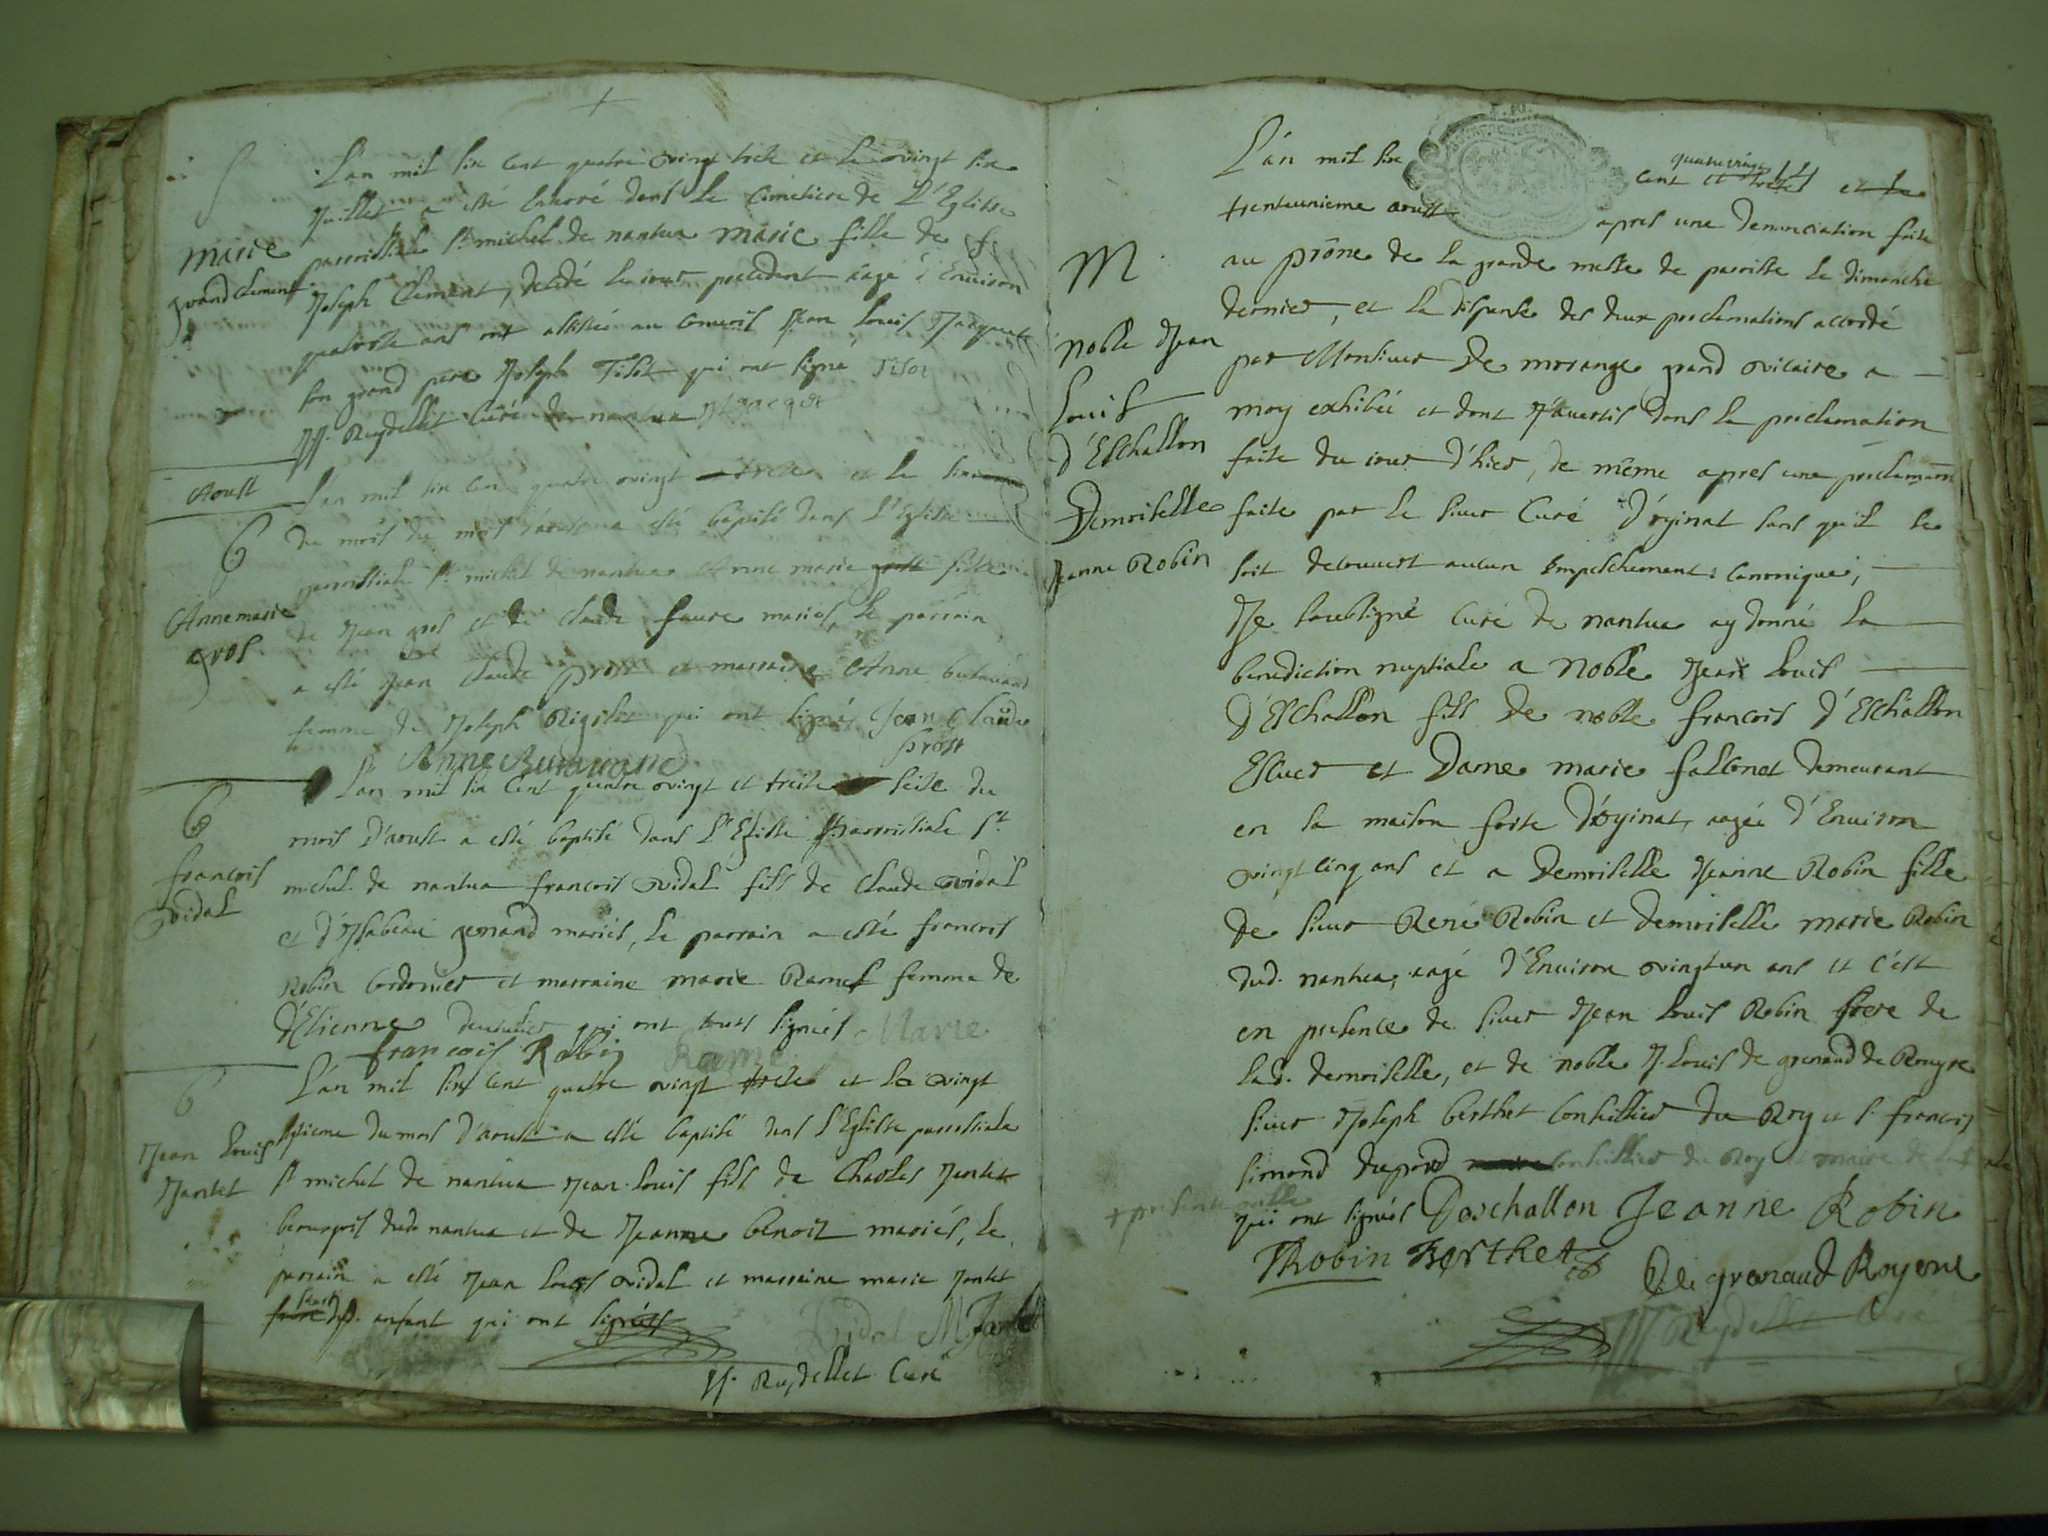 S
L'an mil six cent quatre vingt treize et le vingt six
Juillet a esté enterré dans le Cimetiere de L'Eglise
marie
parroissiale St michel de nantua marie fille de
grand Clement
Joseph Clement, decedé le iour precedent aagé d'Environ
quatorze ans ont assisté au convois Jean Louis Jacquet
son grand pere Joseph Tisot qui ont signé Tisot
JJ. Ruydellet Curé de nantua Jacquet
Aoust
L'an mil six cens quatre vingt treize et le
B
du mois d'aoust a esté baptisé dans l'Eglise
parroissiale St michel de nantua Anne marie fille
Anne marie
de Jean gros et de Claude faure mariés, le parrain
gros
a esté Jean Claude prost et marraine Anne
femme de Joseph qui ont signés Jean Claude
prost
Anne
L'an mil six cent quatre vingt et treize seise du
B
mois d'aoust a esté baptisé dans l'Eglise parroissiale St
françois
michel de nantua françois vidal fils de Claude vidal
vidal
et d'Isabeau genand mariés, le parrain a esté francois
Robin Cordonier et marraine marie Ramel femme de
d'Etienne qui ont tous signés Marie
francois Robin Ramel
B
L'an mil six cent quatre vingt treize et le vingt
Jean Louis
septieme du mois d'aoust a esté baptisé dans l'Eglise parroissiale
Jantet
St michel de nantua Jean Louis fils de Charles Jantet
bourgois dud. nantua et de Jeanne benoit mariés, le
parrain a esté Jean Louis vidal et marraine marie Jantet
soeur
dud. enfant qui ont signés
Vidal M Jantet
JJ. Ruydellet Curé
L'an mil six cent et quatre vingt treize et le
trenteunieme aoust apres une denunciation faite
M
au prône de la grande messe de parroisse le dimanche
dernier, et la dispense des deux proclamations accordé
noble Jean
par Monsieur de morange grand vicaire a
Louis
moy exhibéé et dont J'avertis dans la proclamation
d'Eschallon
faite du iour d'hier, de même apres une proclamaon
Demoiselle
faite par le sieur Curé d'oyinat sans qu'il se
Jeanne Robin
soit decouvert aucun Empeschement Canonique,
Je soubsigné Curé de nantua ay donné la
benediction nuptiale a Noble Jean Louis
d'Eschallon fils de noble françois d'Eschallon
Escuer et Dame marie fallenet demeurant
en sa maison forte d'oyinat, aagéé d'Environ
vingt cinq ans et a Demoiselle Jeanne Robin fille
de sieur René Robin et demoiselle marie Robin
dud. nantua, aagé d'Environ vingt un ans et c'est
en presence de sieur Jean Louis Robin frere de
lad. demoiselle, et de noble J. Louis de grenaud de Rougre
sieur Joseph berthet Conseillier du Roy et s. francois
simond dupord conseillier du Roy et maire de
+ presente ville
qui ont signés Deschallon Jeanne Robin
JRobin Berthet
De grenaud Royere
JJ Ruydellet Curé